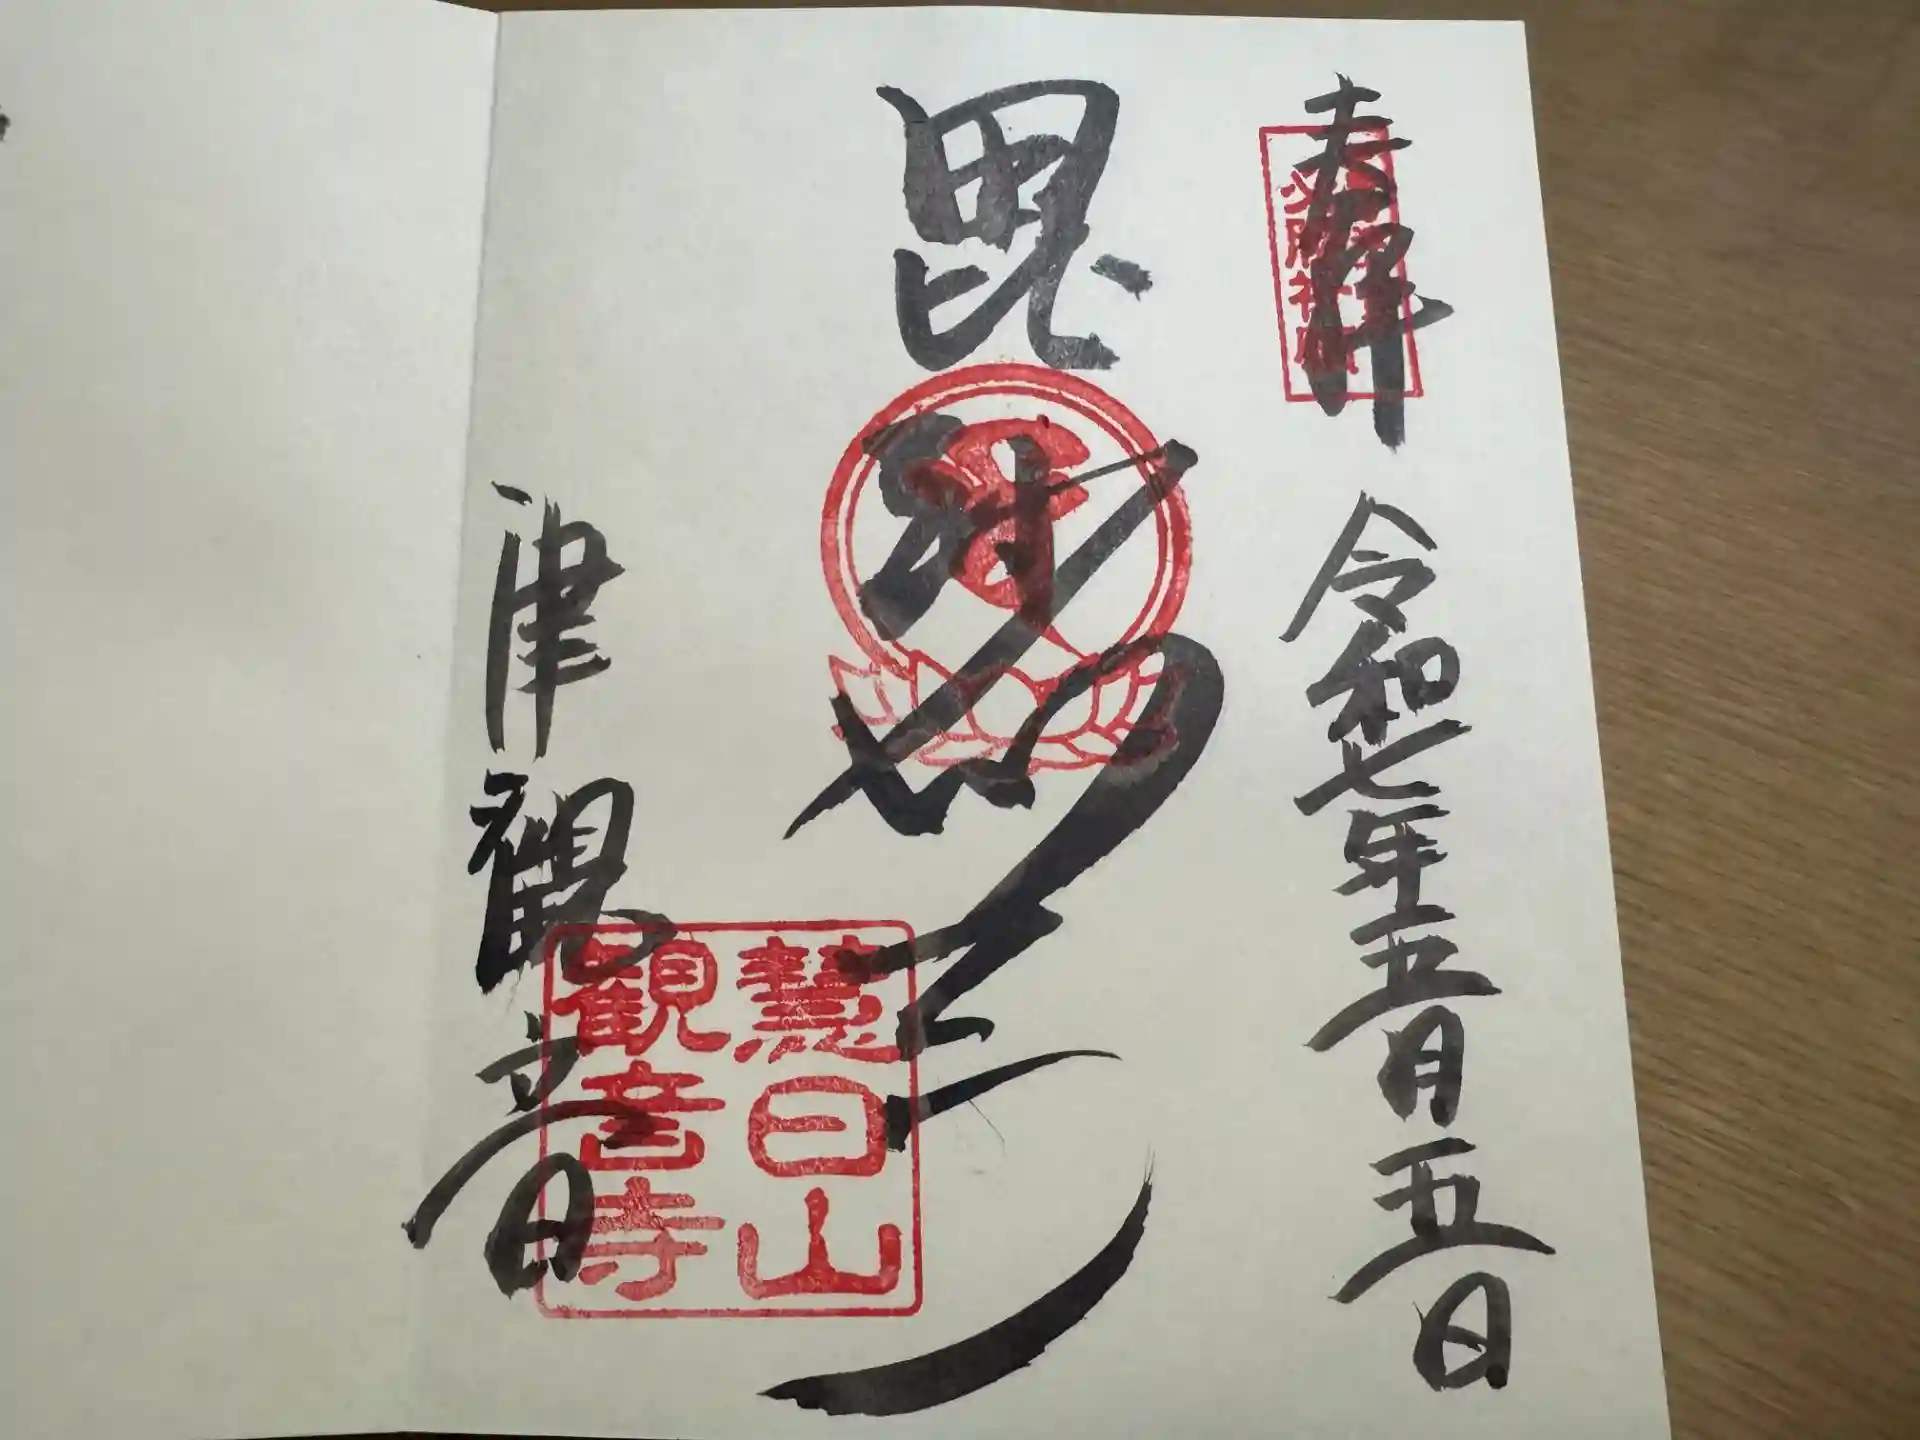 奉拝
必勝祈願
令和七年五月五日
毘沙門天
慧日山
観音寺
津観音